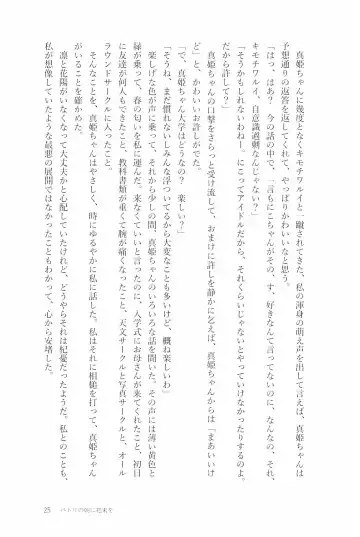 真姫ちゃんに幾度となくキモチワルイと一蹴されてきた、私の渾身の萌え声を出して言えば、真姫ちゃんは
予想通りの返答を返してくれて、やっぱりかわいいなと思う。
「はっ、はあ？　今の話の中で、一言もにこちゃんがその、す、好きなんて言ってないのに、なんなの、それ、
キモチワルイ、自意識過剰なんじゃない？」
「そうかもしれないわねー。にこってアイドルだから、それくらいじゃないとやっていけなかったりするのよ。
だから許して？」
真姫ちゃんの口撃をさらっと受け流して、おまけに許しを静かに乞えば、真姫ちゃんからは「まあいいけ
ど」と、かわいいお許しがでた。
「で、真姫ちゃん大学はどうなの？　楽しい？」
「そうね、まだ慣れないしみんな浮ついてるから大変なことも多いけど、概ね楽しいわ」
楽しげな色が声に乗って、それから少しの間、真姫ちゃんのいろいろな話を聞いた。その声には薄い黄色と
緑が乗って、春の匂いを私に運んだ。来なくていいと言ったのに、入学式にお母さんが来てくれたこと、初日
に友達が何人もできたこと、教科書類が重くて腕が痛くなったこと、天文サークルと写真サークルと、オール
ラウンドサークルに入ったこと。
そんなことを、真姫ちゃんはやさしく、時にゆるやかに私に話した。私はそれに相槌を打って、真姫ちゃん
がいることを確かめた。
凛と花陽がいなくなって大丈夫かと心配していたけれど、どうやらそれは杞憂だったようだ。私とのことも、
私が想像していたような最悪の展開ではなかったこともわかって、心から安堵した。
25